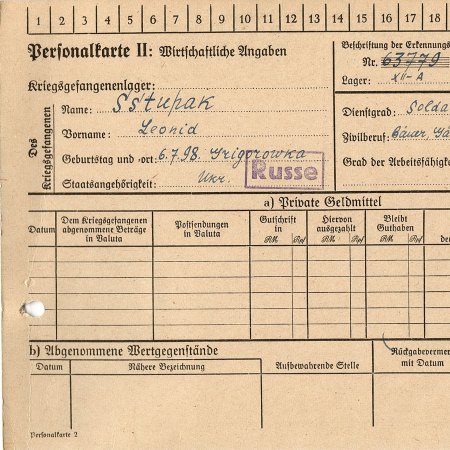 1 2 3 4 5 6 7 8 9 10 11 12 13 14 15 16 17 18
Personalkarte II: Wirtschaftliche Angaben
Beschriftung der Erkennungs
Nr. 63779
Lager: XII-A
Kriegsgefangenenlager:
Des Kriegsgefangenen
Name: Sstupak
Vorname: Leonid
Geburtstag und -ort: 6.7.98. Grigorowka
Staatsangehörigkeit: Ukr.
Russe
Dienstgrad: Solda
Zivilberuf: Bauer,
Grad der Arbeitsfähigke
a) Private Geldmittel
Datum
Dem Kriegsgefangenen abgenommene Beträge in Valuta
Postsendungen in Valuta
Gutschrift in
RM. Rpf
Hiervon ausgezahlt
RM. Rpf
Bleibt Guthaben
RM. Rpf
der
b) Abgenommene Wertgegenstände
Datum
Nähere Bezeichnung
Aufbewahrende Stelle
Rückgabevermer
mit Datum
Personalkarte 2